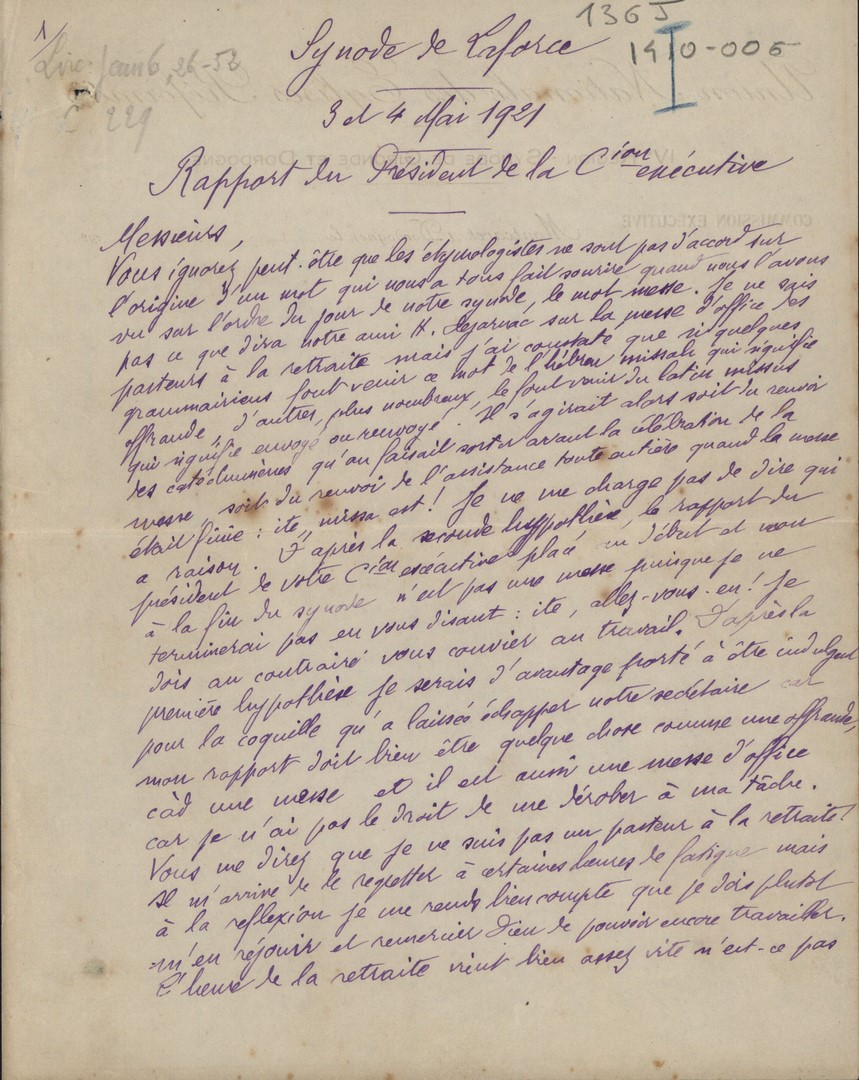 1
136 J
1410-006
Lire Jean 6, 26-58
229
Synode de Laforce
3 et 4 Mai 1921
Rapport du Président de la Cion exécutive
Messieurs,
Vous ignorez peut-être que les étymologistes ne sont pas d'accord sur
l'origine d'un mot qui nous a tous fait sourire quand nous l'avons
vu sur l'ordre du jour de notre synode, le mot messe. Je ne sais
pas ce que dira notre ami M. Dejarnac sur la messe d'office des
pasteurs à la retraite mais j'ai constaté que si quelques
grammairiens font venir ce mot de l'hébreu missah qui signifie
offrande, d'autres, plus nombreux, le font venir du latin missus
qui signifie envoyé ou renvoyé. Il s'agirait alors soit du renvoi
des catéchumènes qu'on faisait sortir avant la célébration de la
messe soit du renvoi de l'assistance toute entière quand la messe
était finie : ite, missa est ! Je ne me charge pas de dire qui
a raison. D'après la seconde hypothèse, le rapport du
président de votre Cion exécutive placé au début et non
à la fin du synode n'est pas une messe puisque je ne
terminerai pas en vous disant : ite, allez-vous-en ! Je
dois au contraire vous convier au travail. D'après la
première hypothèse je serais d'avantage porté à être indulgent
pour la coquille qu'a laissée échapper notre secrétaire car
mon rapport doit bien être quelque chose comme une offrande,
càd une messe et il est aussi une messe d'office
car je n'ai pas le droit de me dérober à ma tâche.
Vous me direz que je ne suis pas un pasteur à la retraite !
Il m'arrive de le regretter à certaines heures de fatigue mais
à la reflexion je me rends bien compte que je dois plutôt
m'en réjouir et remercier Dieu de pouvoir encore travailler.
L'heure de la retraite vient bien assez vite n'est-ce pas